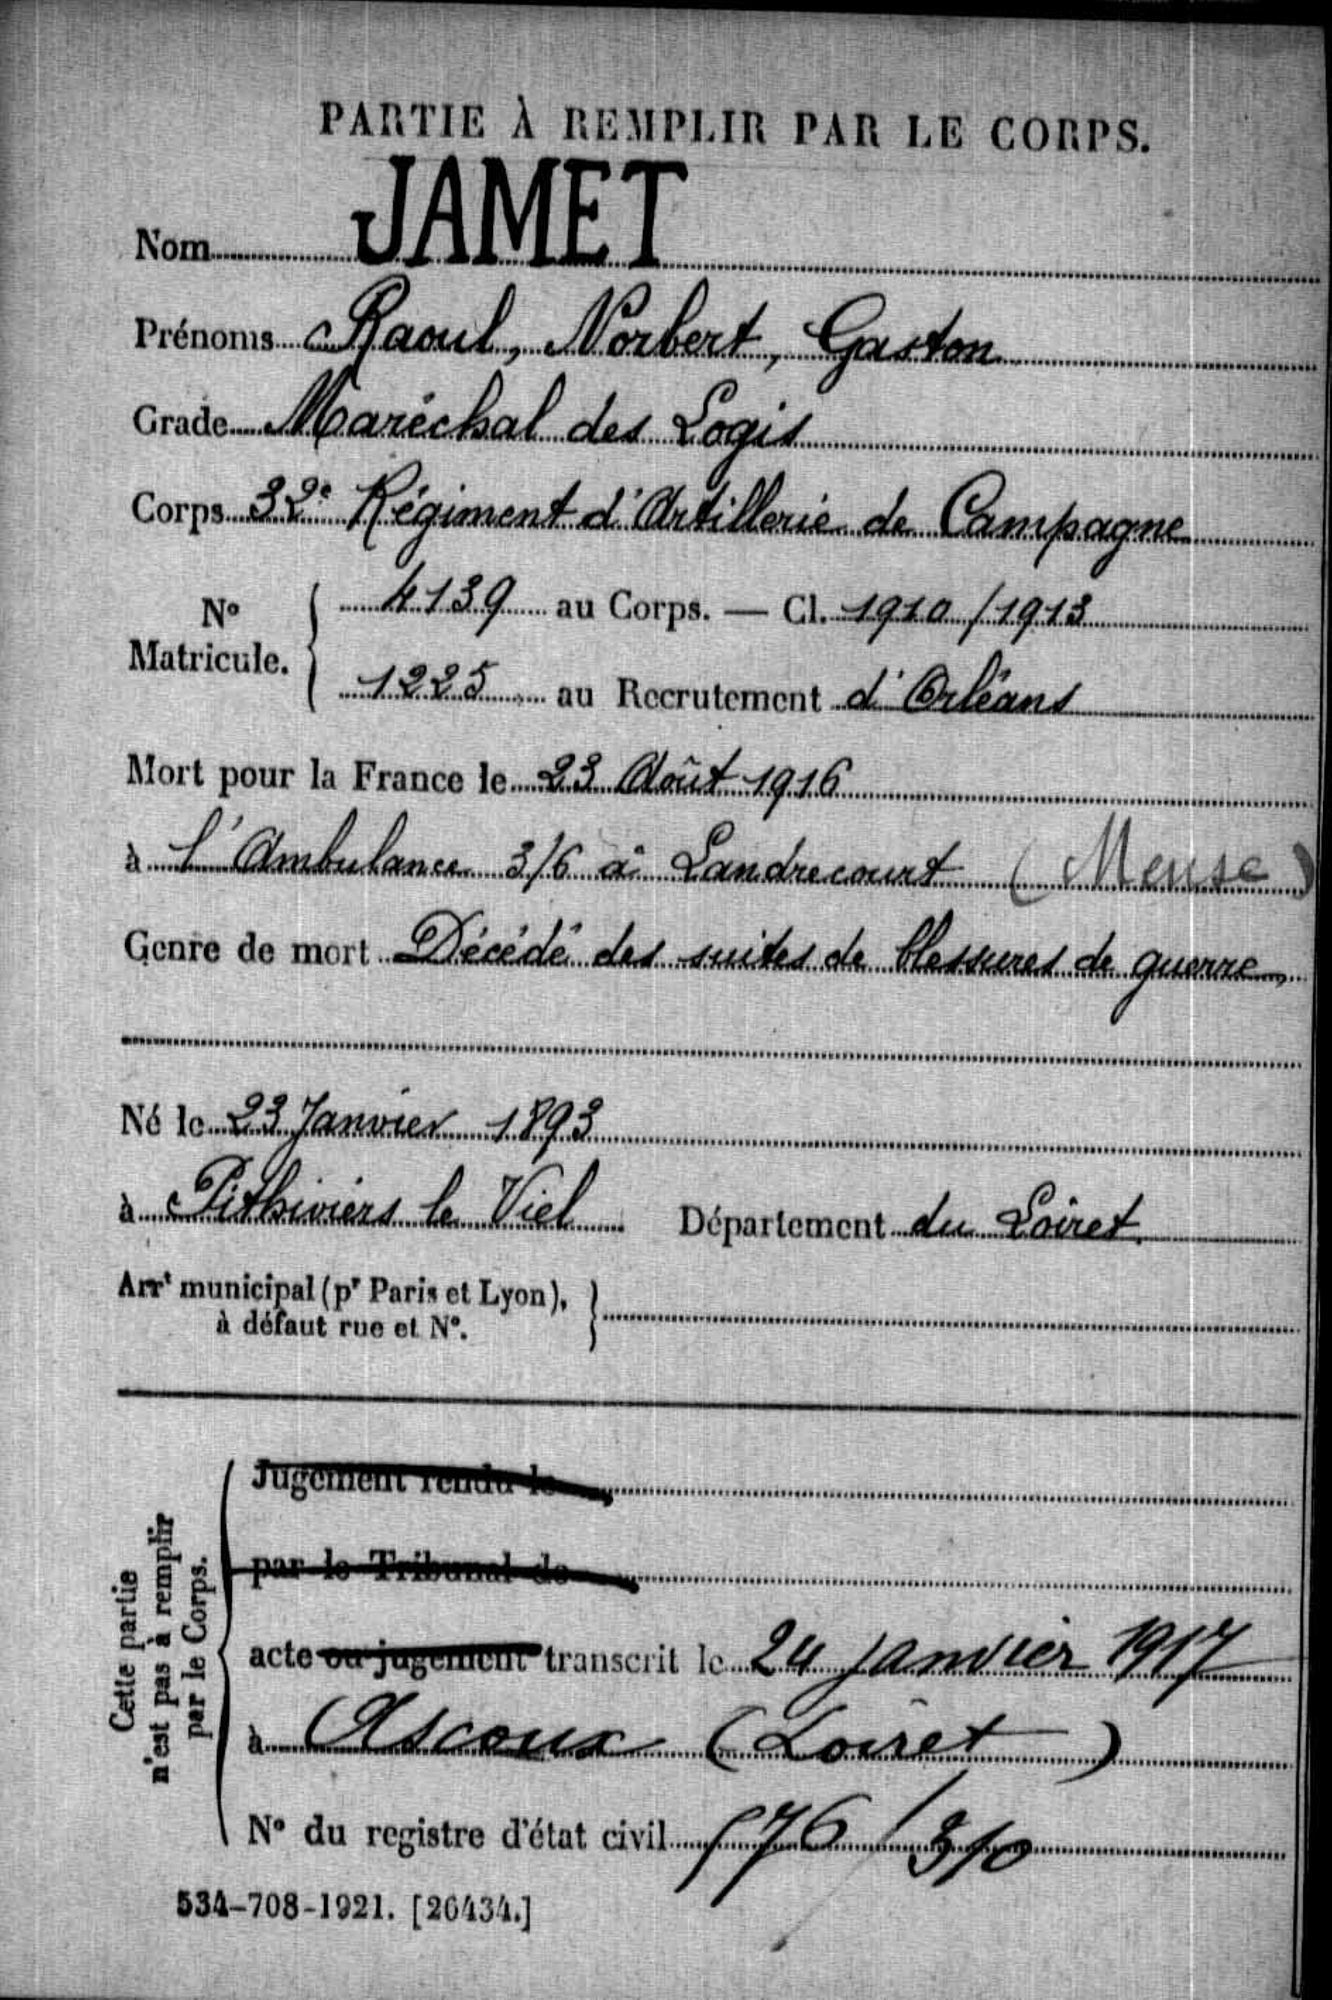 PARTIE À REMPLIR PAR LE CORPS.
Nom JAMET
Prénoms Raoul, Norbert, Gaston
Grade Maréchal des Logis
Corps 32e Régiment d'Artillerie de Campagne
No Matricule. { 4139 au Corps. — Cl. 1910/1913
1225 au Recrutement d'Orléans
Mort pour la France le 23 Août 1916
à l'Ambulance 3/6 à Landrecourt (Meuse)
Genre de mort Décédé des suites de blessures de guerre
Né le 23 Janvier 1893
à Pithiviers le Viel Département du Loiret
Arrt municipal (pr Paris et Lyon),
à défaut rue et No.
Cette partie
n'est pas à remplir
par le Corps.
Jugement rendu le
par le Tribunal de
acte ou jugement transcrit le 24 janvier 1917
à Ascoux (Loiret)
No du registre d'état civil 576/310
534-708-1921. [26434.]